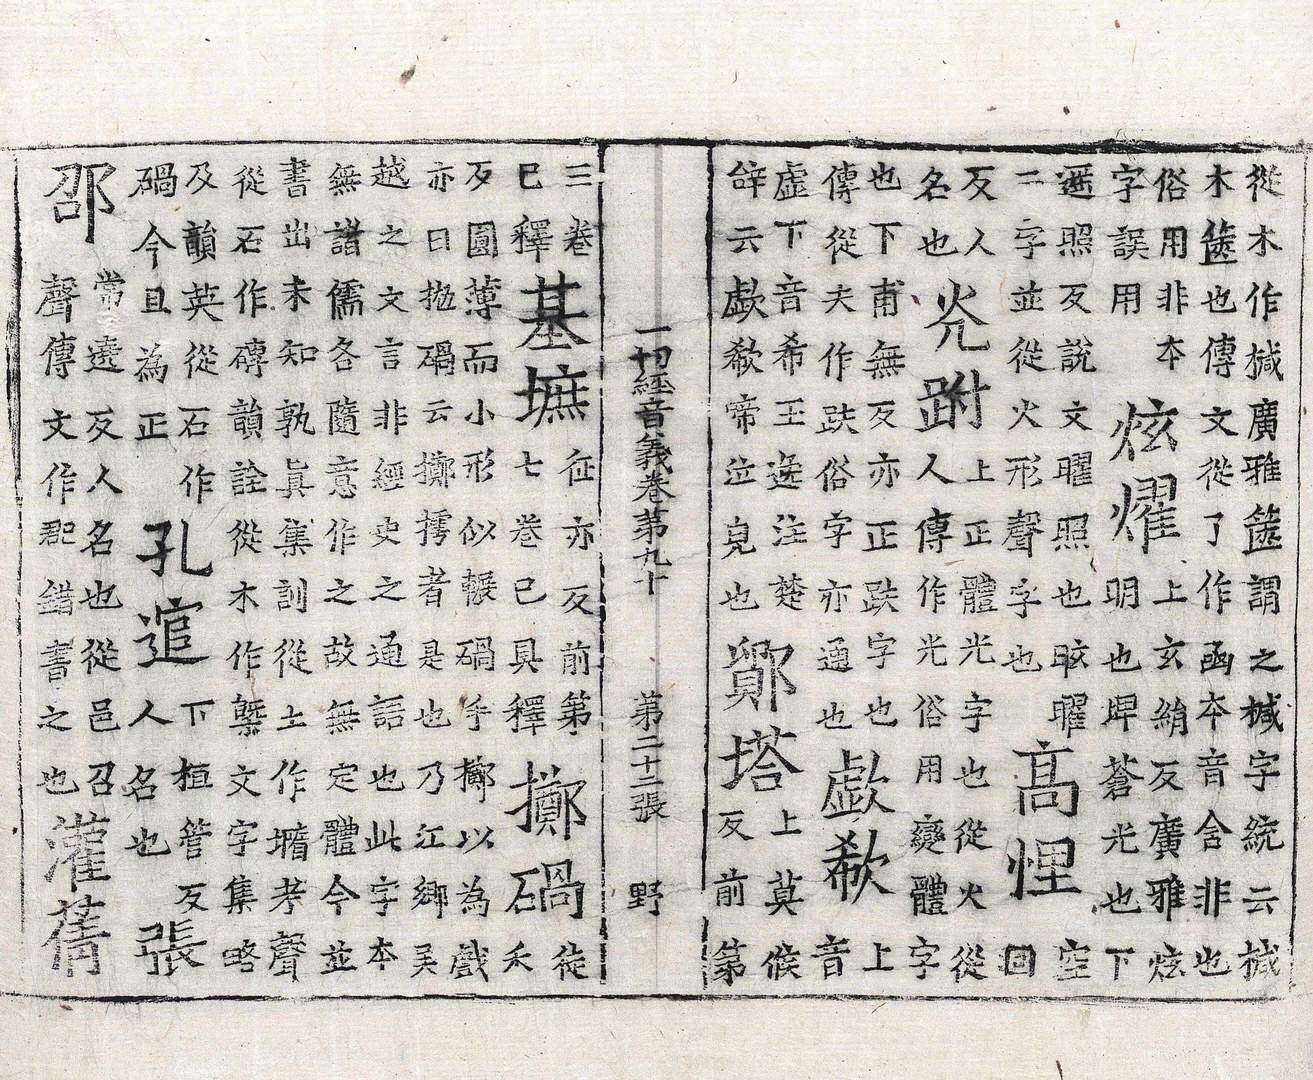 從木作椷廣雅篋謂之椷字統云椷
木篋也傳文從了作函本音含非也
俗用非本
字誤用
炫燿
上玄絹反廣雅炫
明也埤蒼光也下
遥照反說文曜照也昡曜
二字並從火形聲字也
高悝
空
回
反人
名也
炗跗
上正體光字也從火從
人傳作光俗用變體字
也下甫無反亦正趺字也
傳從夫作跌俗字亦通也
歔欷
上
音
虛下音希王逸注楚
辝云歔欷帝泣皃也
鄮塔
上莫候
反前第
一切經音義卷第九十 第二十二張 野
三卷
已釋
基墌
征亦反前第
七卷已具釋
擲碢
徒
禾
反圓薄而小形似輾碢手擲以為戲
亦曰拋碢云擲摴者是也乃江鄉吴
越之文言非經史之通語也此字本
無諸儒各隨意作之故無定體今並
書出未知孰真集訓從土作墖考聲
從石作磚韻詮從木作槧文字集略
及韻英從石作
碢今且為正
孔逭
下桓管反
人名也
張
邵
常遶反人名也從邑召
聲傳文作郡錯書之也
灌蒨